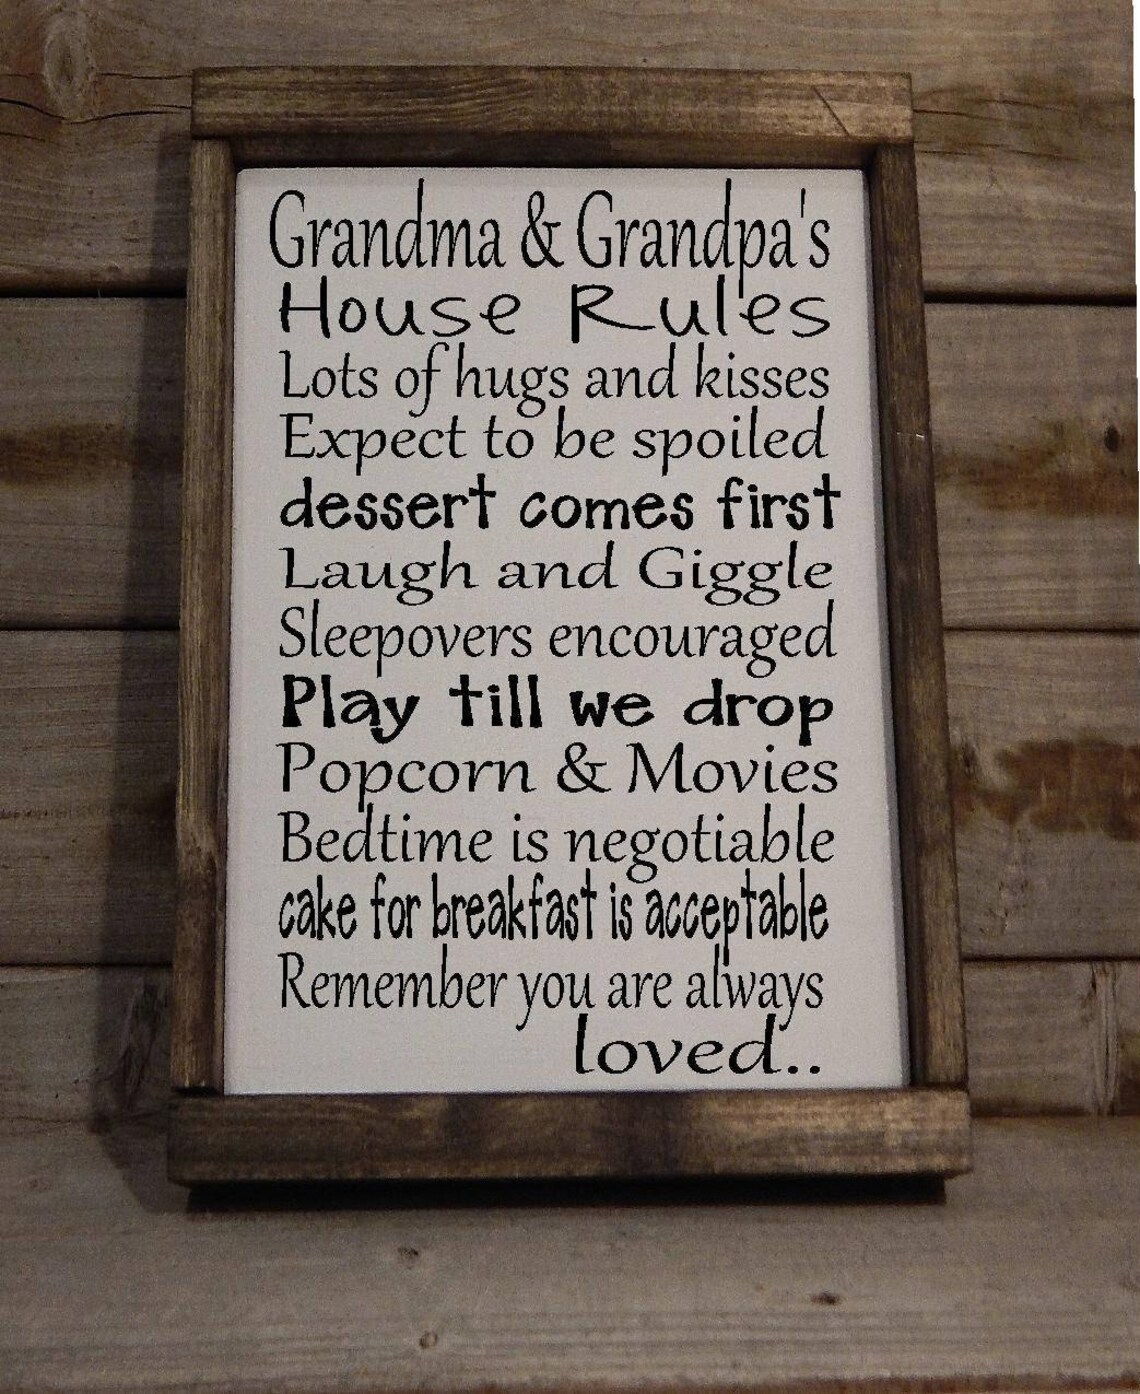 Grandma & Grandpa's
House Rules
Lots of hugs and kisses
Expect to be spoiled
dessert comes first
Laugh and Giggle
Sleepovers encouraged
Play till we drop
Popcorn & Movies
Bedtime is negotiable
cake for breakfast is acceptable
Remember you are always
loved..